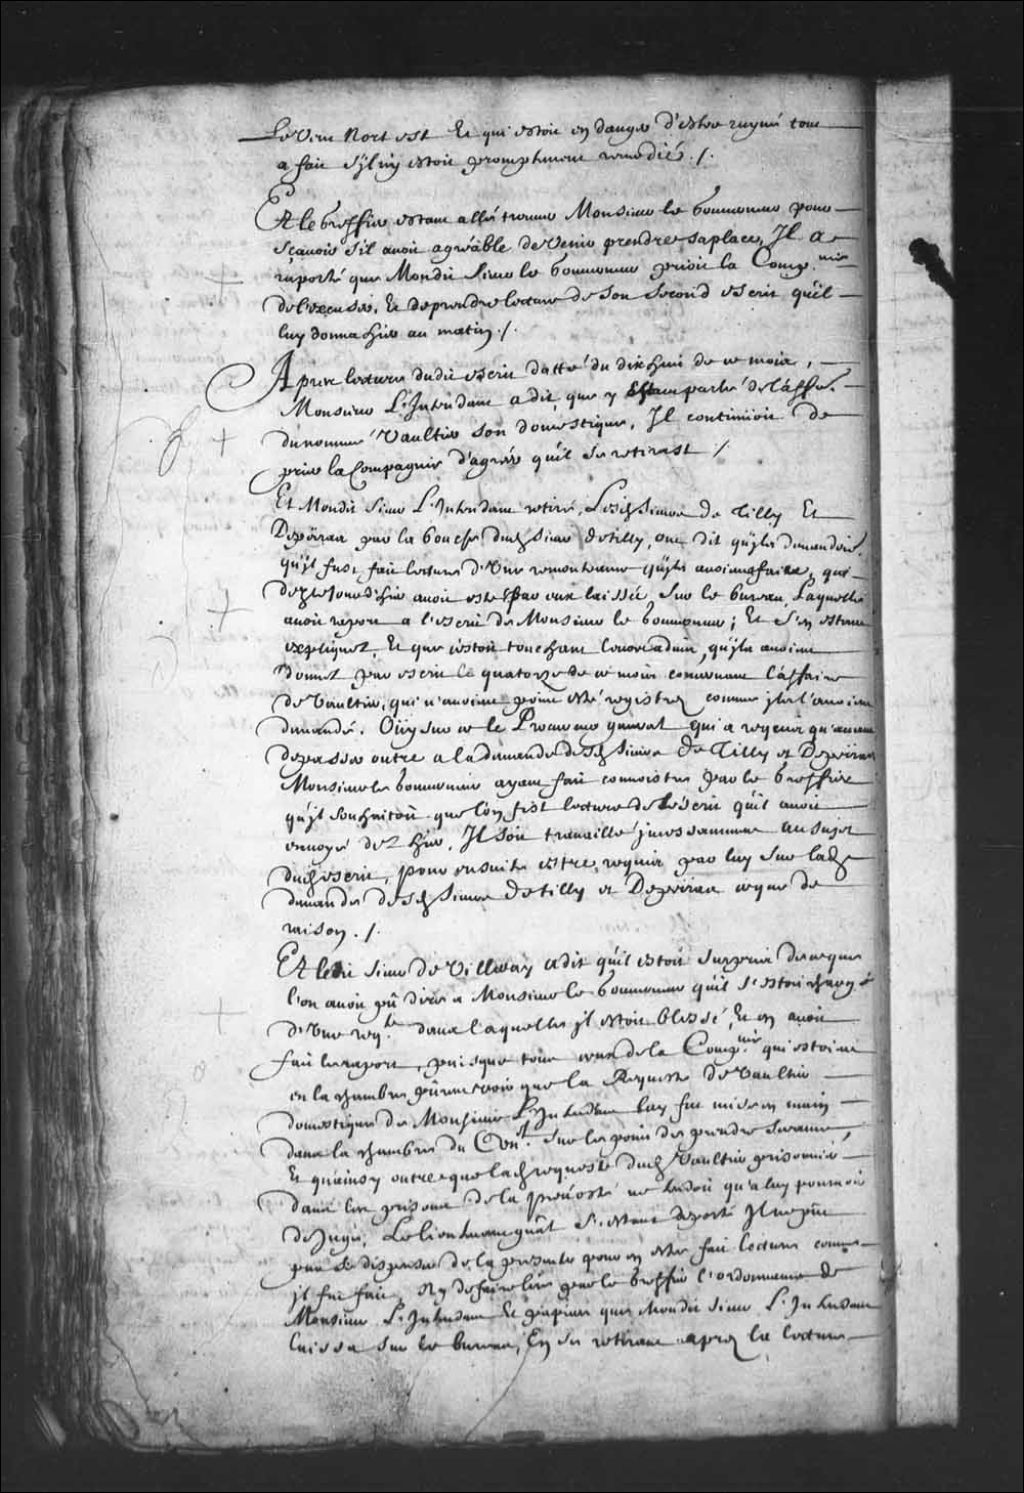 Le Vent Nort est Et qui estoit en danger d'estre ruyné tout
a fait s'jl n'y estoit promptement remedié ./.
Et le Greffier estant allé trouver Monsieur le Gouverneur pour
sçavoir s'il avoit agréable de Venir prendre sa place, Jl a
raporté que Mondit Sieur le Gouverneur prioit la Compnie
de l'excuser, Et de prendre lecture de son second escrit qu'il
luy donna hier au matin ./.
Apres lecture dudit escrit datté du dixhuit de ce mois,
Monsieur L'Intendant a dit que y Estant parlé de l'affre
du nommé Vaultier son domestique, Jl continüoit de
prier la Compagnie d'agréer qu'il se retirast ./
Et Mondit Sieur L'Intendant retiré, Lesd. Sieurs de Tilly Et
Depeiras par la bouche dud. Sieur de Tilly, ont dit qu'jls demandoient
qu'jl fust fait lecture d'Une remontrance qu'jls avoient faite, qui
dez le jour d'hier avoit esté par eux laissée sur le bureau Laquelle
avoit raport a l'escrit de Monsieur le Gouverneur; Et s'en estant
expliquez, Et que c'estoit touchant leurs aduis, qu'jls avoient
donnez par escrit le quatorze de ce mois concernant l'affaire
de Vaultier, qui n'avoient point esté registrez comme jls l'avoient
demandé. Oüy sur ce le Procureur general qui a requis qu'avant
de passer outre a la demande desd. Sieurs de Tilly et Depeiras
Monsieur le Gouverneur ayant fait connoistre par le Greffier
qu'jl souhaitoit que l'on fist lecture de l'escrit qu'il avoit
envoyé dez hier, Jl soit travaillé jncessamment au sujet
dud. escrit, pour ensuite estre, requis par luy sur lad.
demande desd. Sieurs de Tilly et Depeiras ce que de
raison ./.
Et ledit Sieur de Villeray a dit qu'il estoit surpris de ce que
l'on avoit pû dire a Monsieur le Gouverneur qu'il s'estoit chargé
d'Une reqte dans laquelle jl estoit blessé, Et en avoit
fait le raport, puisque tous ceux de la Compnie qui estoient
en la chambre pûrent voir que la Requeste de Vaultier
domestique de Monsieur L'Intendant luy fut mise en main
dans la chambre du Conel sur le point de prendre seance,
Et qu'ainsy outre que lad. requeste dud. Vaultier prisonnier
dans les prisons de la prévosté ne tendoit qu'a luy pourvoir
de Juge, Le Lieutenant gnal s'estant deporté Jl ne put
pas se dispenser de la presenter pour en estre fait lecture comme
jl fut fait, Ny de faire lire par le Greffier l'ordonnance de
Monsieur L'Intendant Et papiers que Mondit Sieur L'Intendant
laissa sur le bureau, En se retirant aprez la lecture